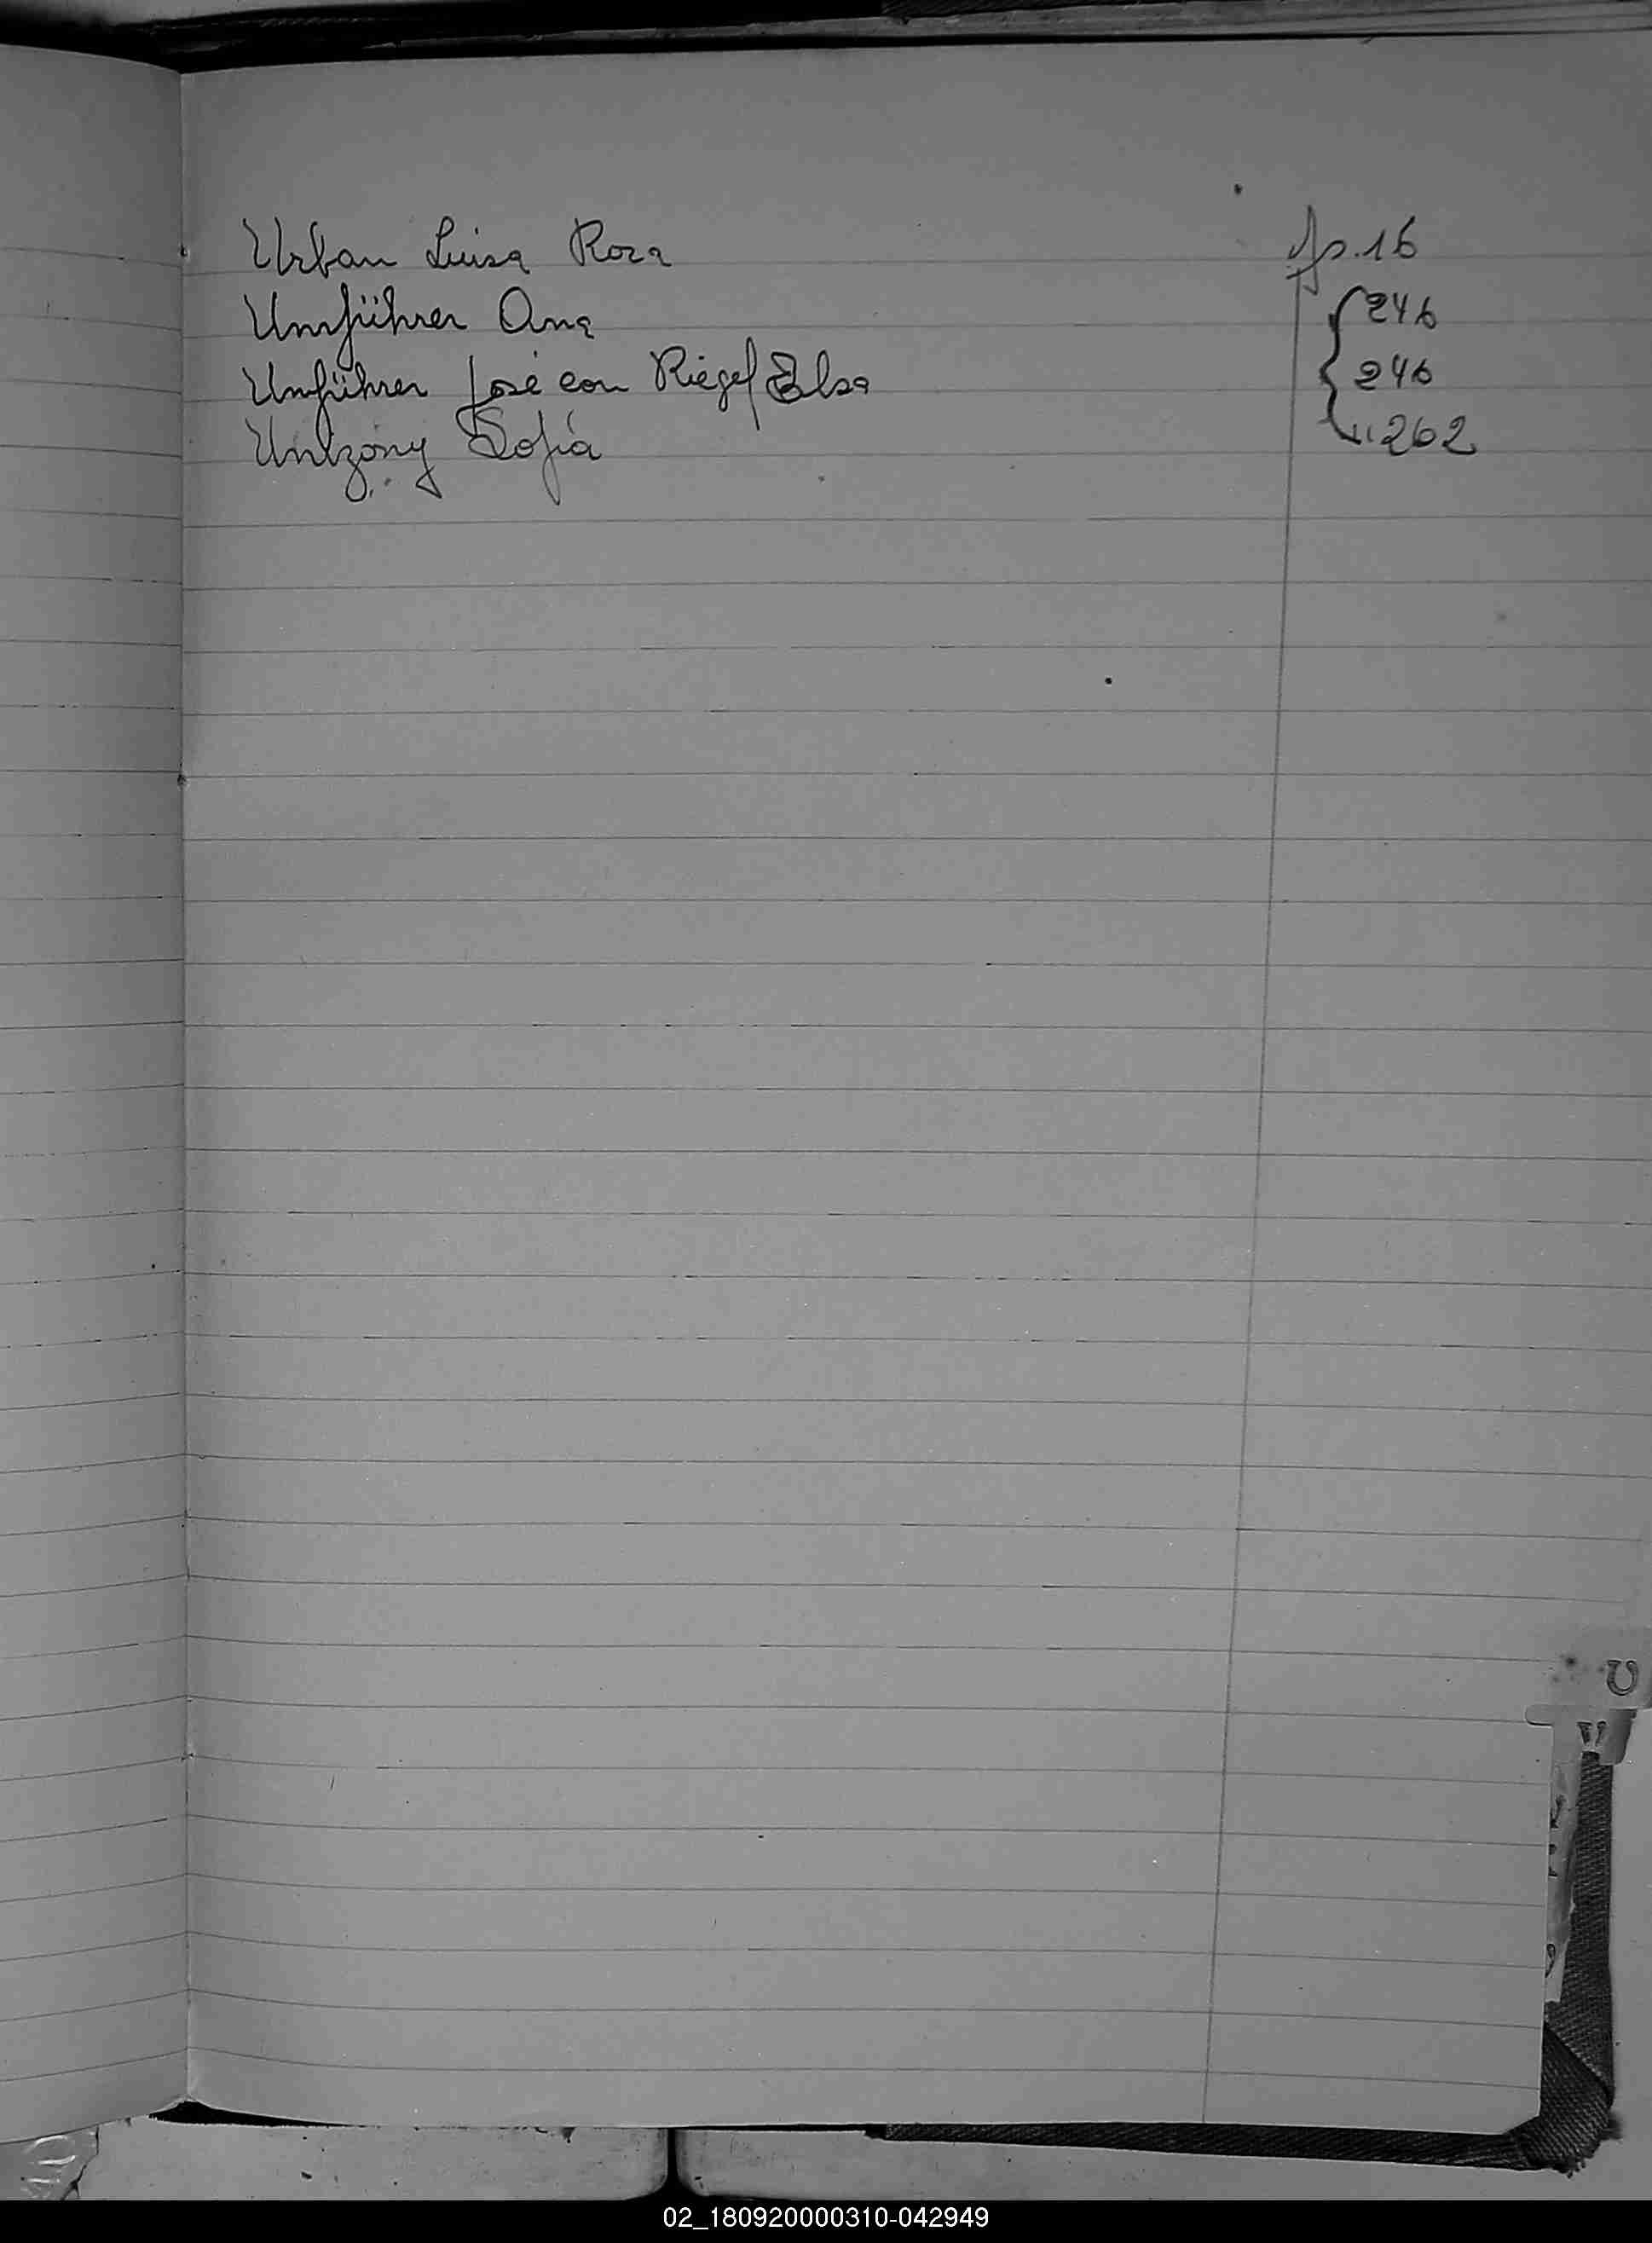 Urban Luisa Rosa fs. 16
Umführer Ana 246
Umführer José con Riegel Elsa 246
Sofía 262
U
V
02_180920000310-042949